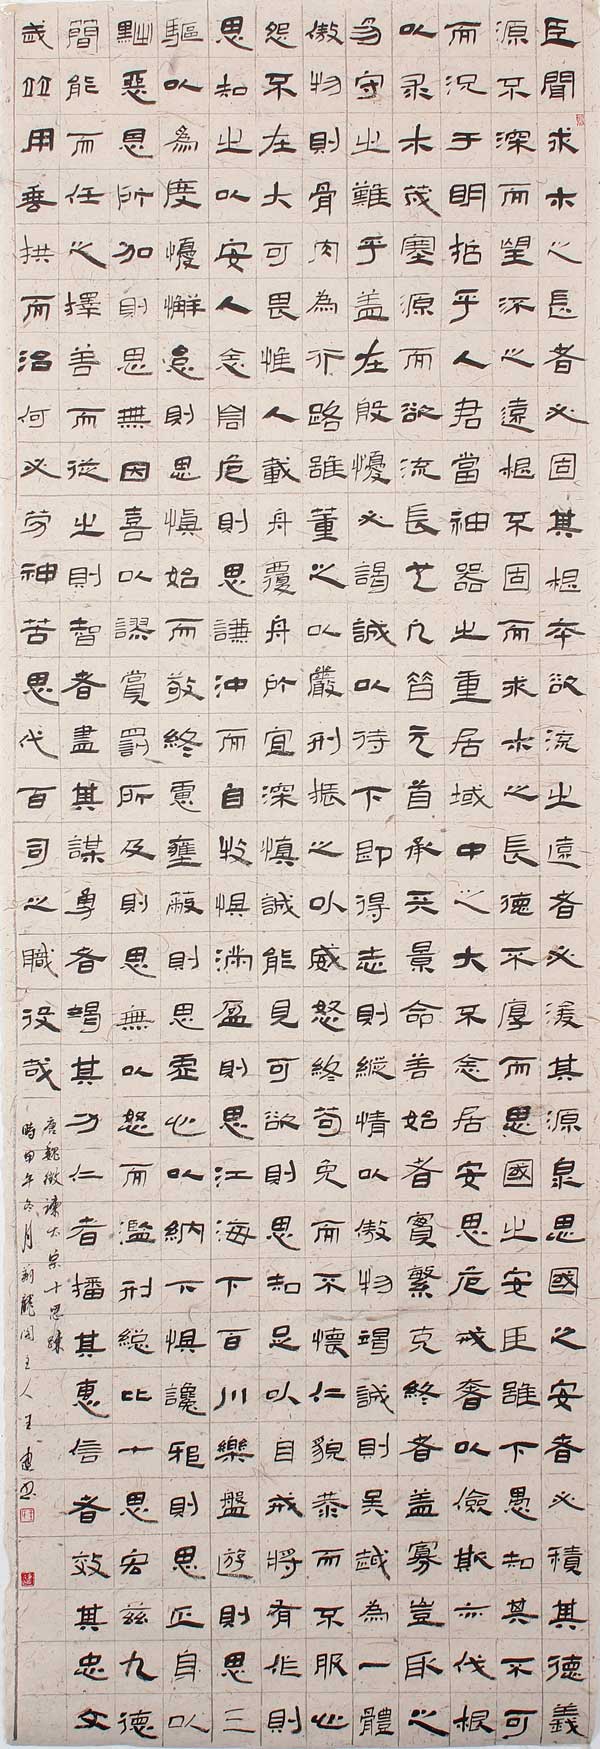 臣聞求木之長者必固其根本欲流之遠者必浚其源泉思國之安者必積其德義
源不深而望流之遠根不固而求木之長德不厚而思國之安臣雖下愚知其不可
而況于明哲乎人君當神器之重居域中之大不念居安思危戒奢以儉斯亦伐根
以求木茂塞源而欲流長也凡昔元首承天景命善始者實繁克終者蓋寡豈取之
易守之難乎蓋在殷懮必竭誠以待下即得志則縱情以傲物竭誠則吳越為一體
傲物則骨肉為行路雖董之以嚴刑振之以威怒終苟免而不懷仁貌恭而不服心
怨不在大可畏惟人載舟覆舟所宜深慎誠能見可欲則思知足以自戒將有作則
思知止以安人念高危則思謙沖而自牧懼滿盈則思江海下百川樂盤遊則思三
驅以為度懮懈怠則思慎始而敬終慮壅蔽則思虛心以納下懼讒邪則思正身以
黜惡恩所加則思無因喜以謬賞罰所及則思無以怒而濫刑總比十思宏茲九德
簡能而任之擇善而從之則智者盡其謀勇者竭其力仁者播其惠信者效其忠文
武並用垂拱而治何必勞神苦思代百司之職役哉
唐魏徵諫太宗十思疏
時甲午冬月龍閣主人王建